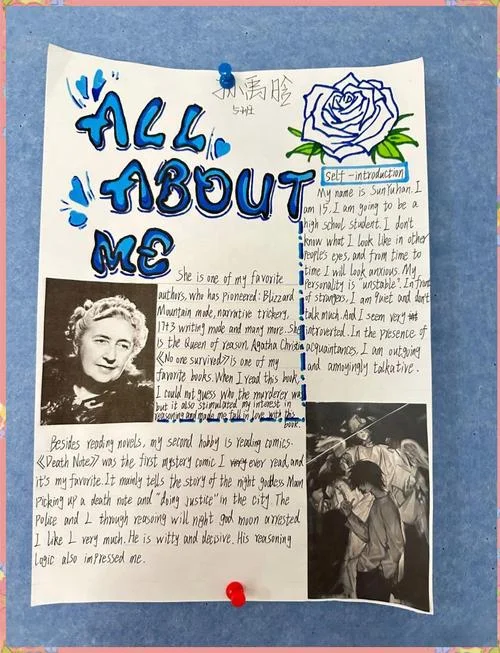 孙禹晗
ALL
ABOUT
ME
Self-introduction
My name is SunYuhan. I
am 15. I am going to be a
high school student. I don't
know what I look like in other
people's eyes, and from time to
time I will look anxious. My
personality is "unstable". In front
of strangers, I am quiet and don't
talk much. And I seem very
introverted. In the presence of
acquaintances, I am outgoing
and annoyingly talkative.
She is one of my favorite
authors, who has pioneered: Blizzard
Mountain mode, narrative trickery,
1743 writing mode and many more. She
is the Queen of reason, Agatha Christie
《No one survived》is one of my
favorite books. When I read this book,
I could not guess who the murderer was
but it also stimulated my interest in
reasoning and made me fall in love with this
book.
Besides reading novels, my second hobby is reading comics.
《Death Note》 was the first mystery comic I ever read, and
it's my favorite. It mainly tells the story of the night goddess Moon
picking up a death note and "doing justice" in the city. The
Police and L through reasoning will night god moon arrested
I like L very much. He is witty and decisive. His reasoning
logic also impressed me.